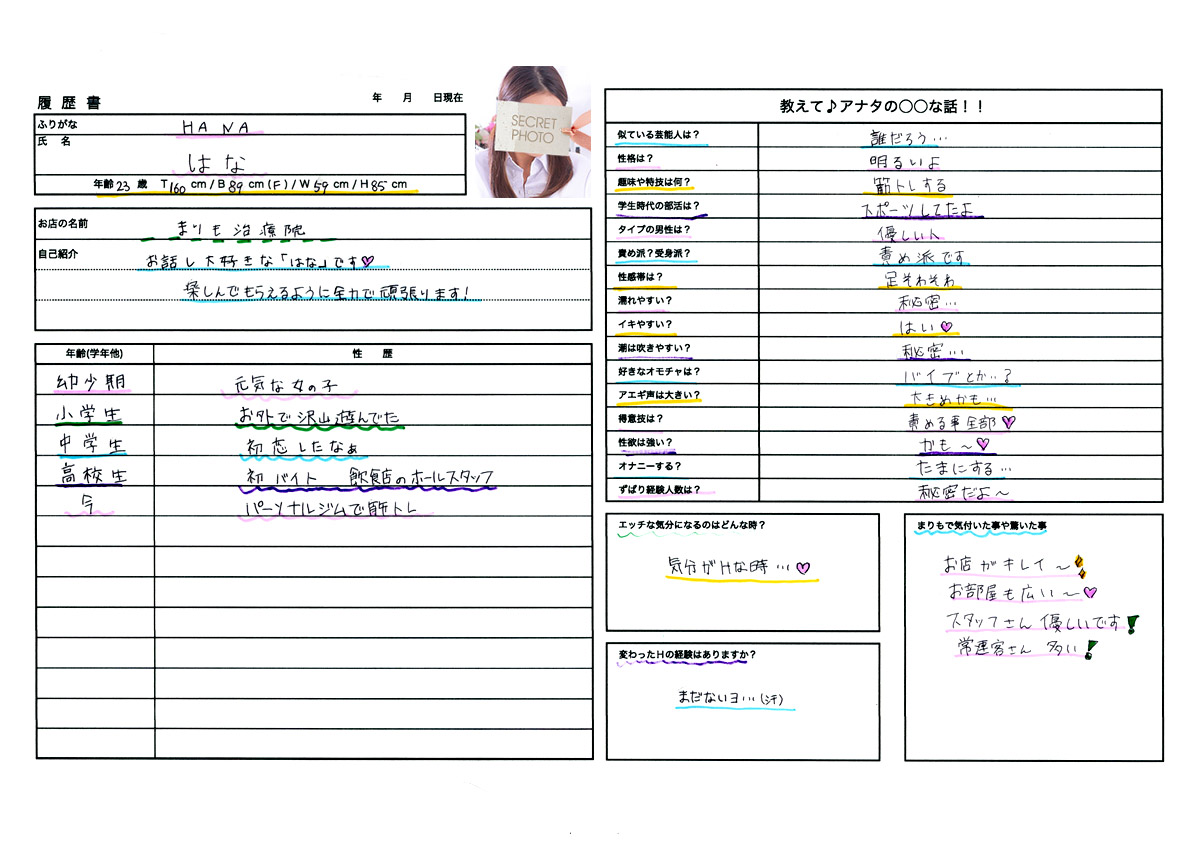 履歴書
年 月 日現在
SECRET
PHOTO
ふりがな HANA
氏 名 はな
年齢 23 歳 T160 cm / B 89 cm (F) / W 59 cm / H 85 cm
お店の名前 まりも治療院
自己紹介 お話し大好きな「はな」です♡
楽しんでもらえるように全力で頑張ります!
年齢(学年他) 性 歴
幼少期 元気な女の子
小学生 お外で沢山遊んでた
中学生 初恋したなぁ
高校生 初バイト 飲食店のホールスタッフ
今 パーソナルジムで筋トレ
教えて♪アナタの○○な話!!
似ている芸能人は? 誰だろう…
性格は? 明るいよ
趣味や特技は何? 筋トレする
学生時代の部活は? スポーツしてたよ
タイプの男性は? 優しい人
責め派?受身派? 責め派です
性感帯は? 足そわそわ
濡れやすい? 秘密…
イキやすい? はい♡
潮は吹きやすい? 秘密…
好きなオモチャは? バイブとか…?
アエギ声は大きい? 大きめかも…
得意技は? 責める事全部♡
性欲は強い? かも~♡
オナニーする? たまにする…
ずばり経験人数は? 秘密だよ~
エッチな気分になるのはどんな時?
気分がHな時…♡
変わったHの経験はありますか?
まだないヨ…(汗)
まりもで気付いた事や驚いた事
お店がキレイ~
お部屋も広い~♡
スタッフさん優しいです!
常連客さん 多い!